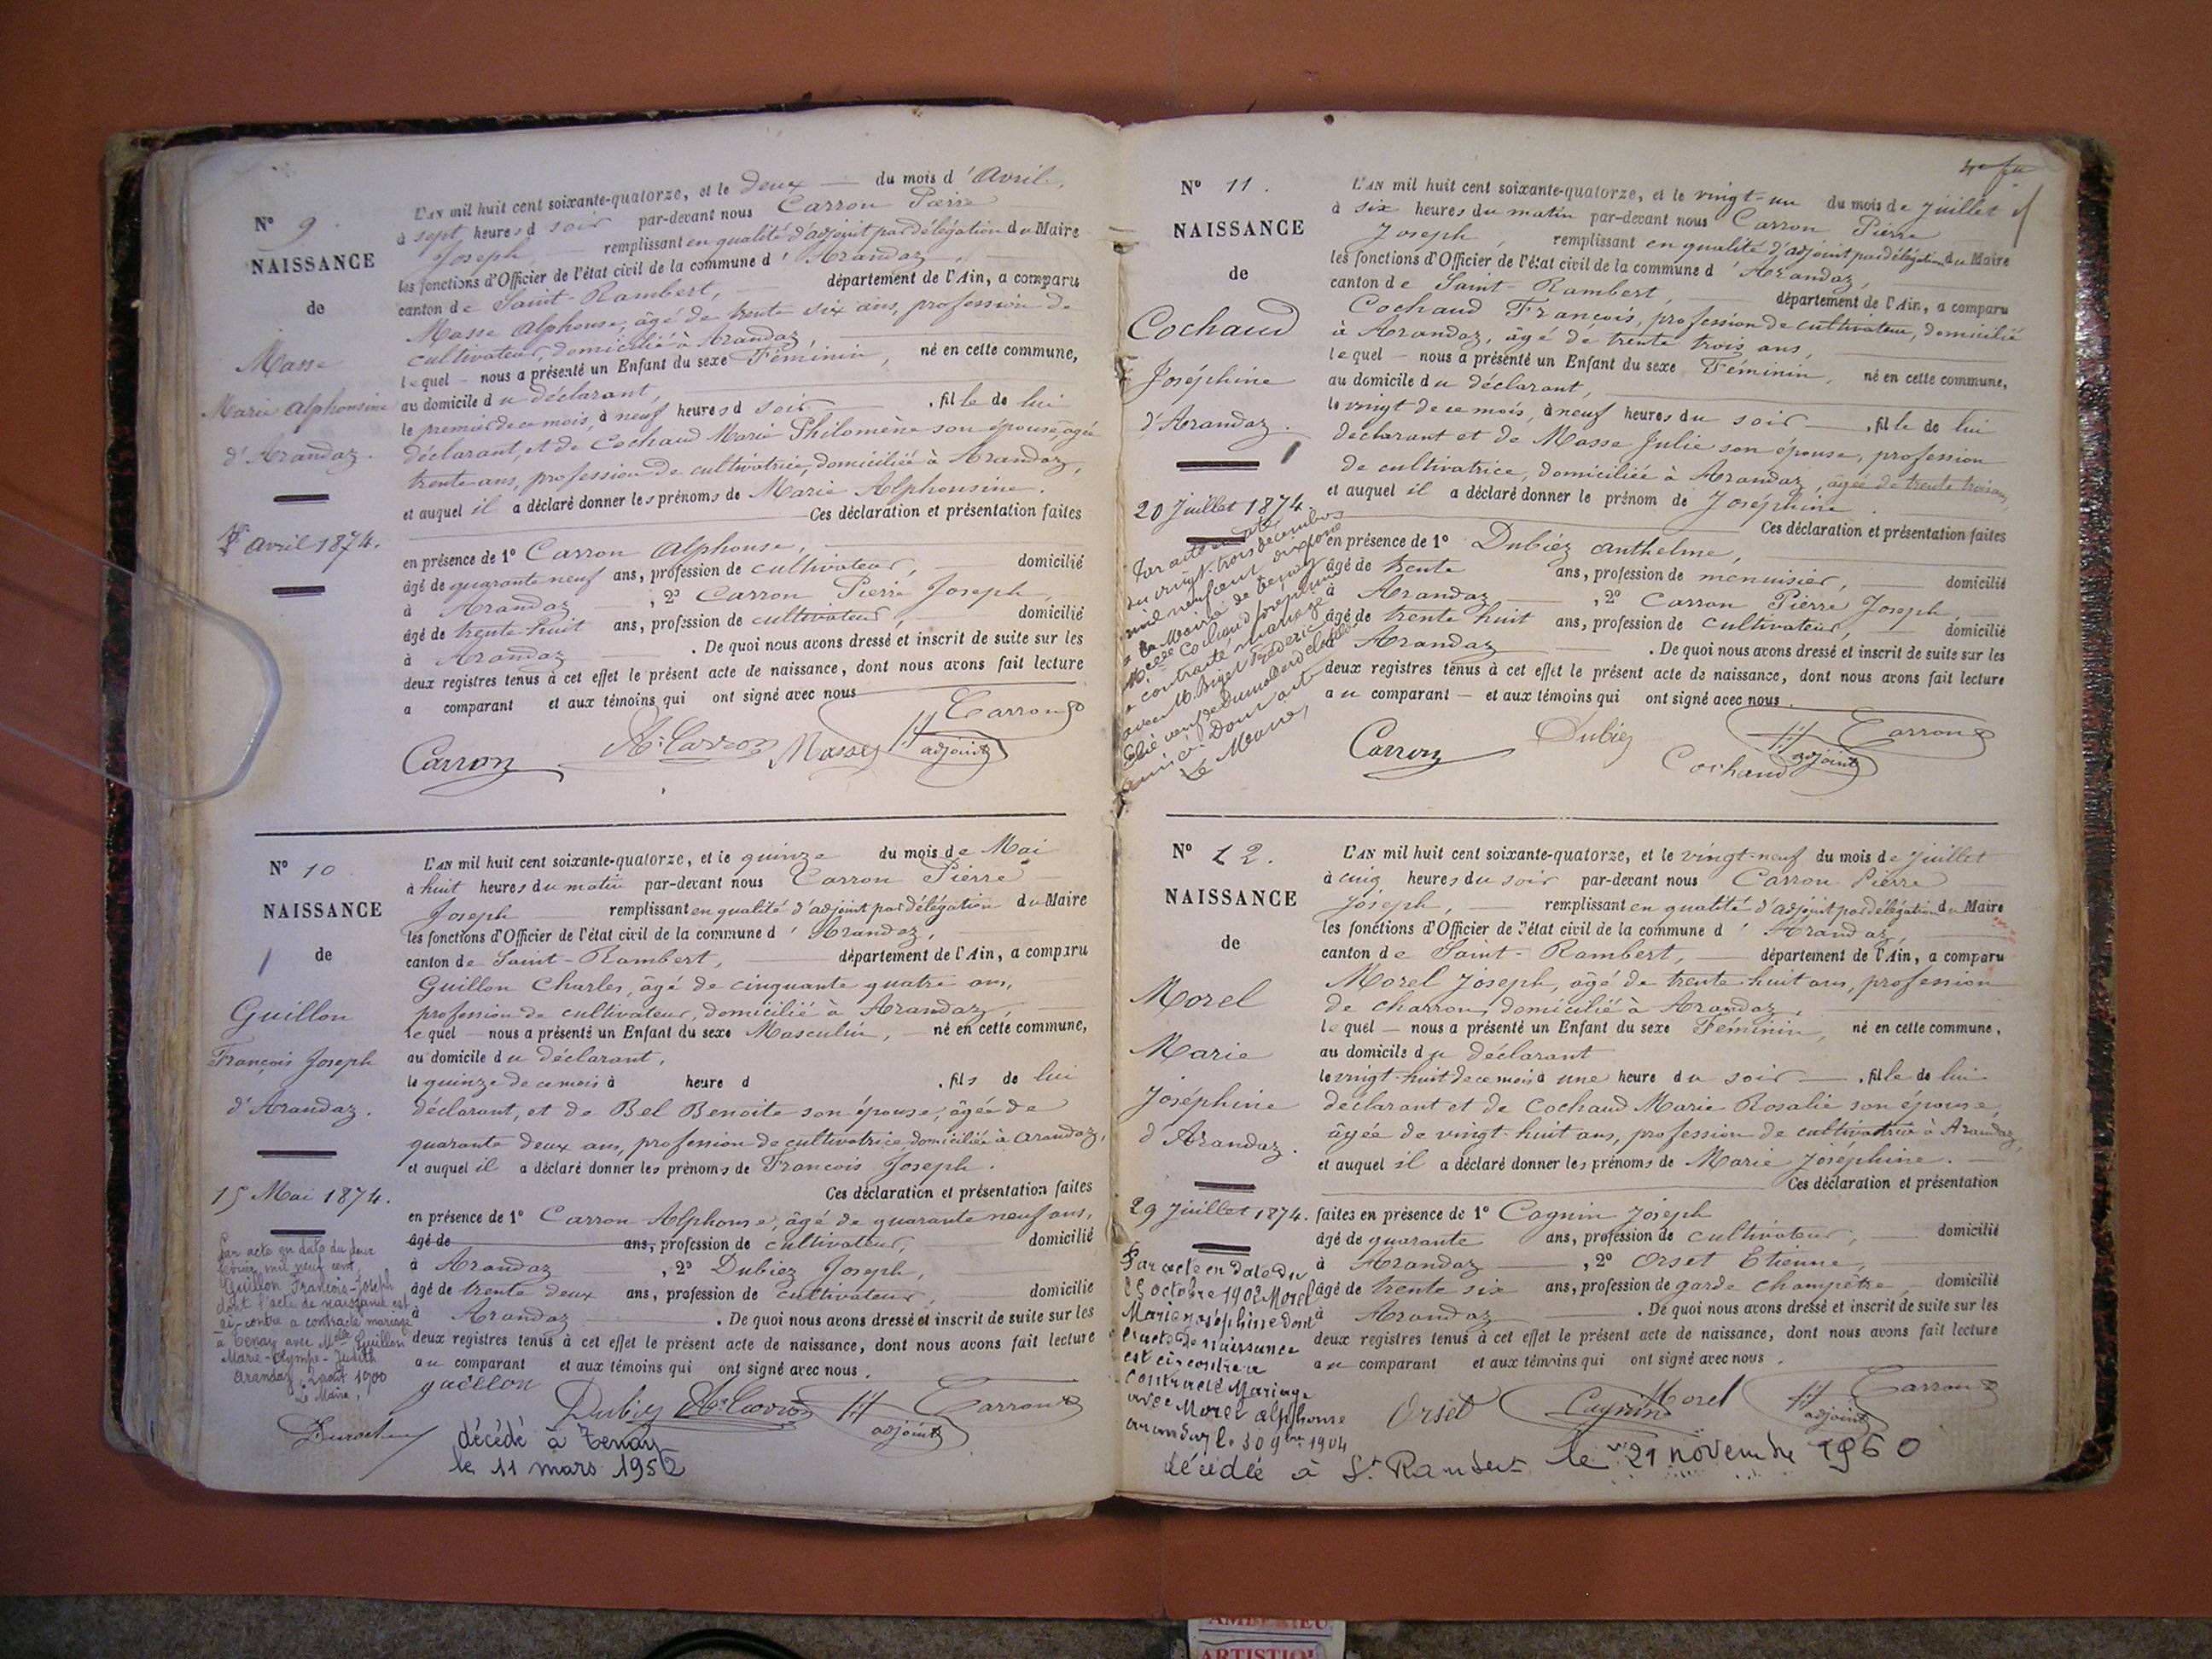 N° 9.
NAISSANCE
de
Masse
Marie Alphonsine
d'Arandaz.
1er Avril 1874.
L'AN mil huit cent soixante-quatorze, et le deux du mois d'Avril,
à sept heures d soir par-devant nous Carron Pierre
Joseph, remplissant en qualité d'adjoint par délégation du Maire
les fonctions d'Officier de l'état civil de la commune d'Arandaz,
canton de Saint-Rambert, département de l'Ain, a comparu
Masse Alphonse, âgé de trente six ans, profession de
cultivateur, domicilié à Arandaz,
lequel nous a présenté un Enfant du sexe Féminin, né en cette commune,
au domicile du déclarant,
le premier de ce mois, à neuf heures d soir, fille de lui
déclarant, et de Cochaud Marie Philomène son épouse, âgée
trente ans, profession de cultivatrice, domiciliée à Arandaz,
et auquel il a déclaré donner les prénoms de Marie Alphonsine.
Ces déclaration et présentation faites
en présence de 1° Carron Alphonse,
âgé de quarante neuf ans, profession de cultivateur, domicilié
à Arandaz, 2° Carron Pierre Joseph,
âgé de trente huit ans, profession de cultivateur, domicilié
à Arandaz. De quoi nous avons dressé et inscrit de suite sur les
deux registres tenus à cet effet le présent acte de naissance, dont nous avons fait lecture
a comparant et aux témoins qui ont signé avec nous
Carron A. Carron Masse Carron
adjoint
N° 10.
NAISSANCE
de
Guillon
François Joseph
d'Arandaz.
15 Mai 1874.
Par acte en date du deux
mil neuf cent,
Guillon François-Joseph
dont l'acte de naissance est
ci-contre a contracté mariage
à Tenay avec Melle Guillon
Marie-Olympe-Judith
Arandaz, 2 août 1900
Le Maire,
L'AN mil huit cent soixante-quatorze, et le quinze du mois de Mai
à huit heures du matin par-devant nous Carron Pierre
Joseph remplissant en qualité d'adjoint par délégation du Maire
les fonctions d'Officier de l'état civil de la commune d'Arandaz,
canton de Saint-Rambert, département de l'Ain, a comparu
Guillon Charles, âgé de cinquante quatre ans,
profession de cultivateur, domicilié à Arandaz,
lequel nous a présenté un Enfant du sexe Masculin, né en cette commune,
au domicile du déclarant,
le quinze de ce mois à heure d, fils de lui
déclarant, et de Bel Benoite son épouse, âgée de
quarante deux ans, profession de cultivatrice, domiciliée à Arandaz,
et auquel il a déclaré donner les prénoms de François Joseph.
Ces déclaration et présentation faites
en présence de 1° Carron Alphonse, âgé de quarante neuf ans,
âgé de ans, profession de cultivateur, domicilié
à Arandaz, 2° Dubiez Joseph,
âgé de trente deux ans, profession de cultivateur, domicilié
à Arandaz. De quoi nous avons dressé et inscrit de suite sur les
deux registres tenus à cet effet le présent acte de naissance, dont nous avons fait lecture
au comparant et aux témoins qui ont signé avec nous.
guillon Dubiez A. Carron Carron
adjoint
décédé à Tenay
le 11 mars 1952
N° 11.
NAISSANCE
de
Cochaud
Joséphine
d'Arandaz.
20 Juillet 1874
Par acte en date
du vingt trois décembre
mil neuf cent dix
à la Mairie de Tenay
Melle Cochaud Joséphine
a contracté mariage
avec M.
Le Maire,
L'AN mil huit cent soixante-quatorze, et le vingt-un du mois de Juillet
à six heures du matin par-devant nous Carron Pierre
Joseph, remplissant en qualité d'adjoint par délégation du Maire
les fonctions d'Officier de l'état civil de la commune d'Arandaz,
canton de Saint-Rambert, département de l'Ain, a comparu
Cochaud François, profession de cultivateur, domicilié
à Arandaz, âgé de trente trois ans,
lequel nous a présenté un Enfant du sexe Féminin, né en cette commune,
au domicile du déclarant,
le vingt de ce mois, à neuf heures du soir, fille de lui
déclarant et de Masse Julie son épouse, profession
de cultivatrice, domiciliée à Arandaz, âgée de trente trois ans,
et auquel il a déclaré donner le prénom de Joséphine.
Ces déclaration et présentation faites
en présence de 1° Dubiez Anthelme,
âgé de trente ans, profession de menuisier, domicilié
à Arandaz, 2° Carron Pierre Joseph,
âgé de trente huit ans, profession de cultivateur, domicilié
à Arandaz. De quoi nous avons dressé et inscrit de suite sur les
deux registres tenus à cet effet le présent acte de naissance, dont nous avons fait lecture
au comparant et aux témoins qui ont signé avec nous.
Carron Dubiez Carron
Cochaud adjoint
N° 12.
NAISSANCE
de
Morel
Marie
Joséphine
d'Arandaz.
29 Juillet 1874.
Par acte en date du
1902 Morel
Marie joséphine dont
l'acte de naissance
est ci contre a
contracté Mariage
avec Morel alphonse
arandaz le 30 9bre 1904
L'AN mil huit cent soixante-quatorze, et le vingt-neuf du mois de Juillet
à cinq heures du soir par-devant nous Carron Pierre
Joseph, remplissant en qualité d'adjoint par délégation du Maire
les fonctions d'Officier de l'état civil de la commune d'Arandaz,
canton de Saint-Rambert, département de l'Ain, a comparu
Morel Joseph, âgé de trente huit ans, profession
de charron, domicilié à Arandaz,
lequel nous a présenté un Enfant du sexe Féminin, né en cette commune,
au domicile du déclarant
le vingt-huit de ce mois à une heure du soir, fille de lui
déclarant et de Cochaud Marie Rosalie son épouse,
âgée de vingt-huit ans, profession de cultivatrice à Arandaz,
et auquel il a déclaré donner les prénoms de Marie Joséphine.
Ces déclaration et présentation
faites en présence de 1° Cagnin Joseph
âgé de quarante ans, profession de cultivateur, domicilié
à Arandaz, 2° Orset Etienne,
âgé de trente six ans, profession de garde champêtre, domicilié
à Arandaz. De quoi nous avons dressé et inscrit de suite sur les
deux registres tenus à cet effet le présent acte de naissance, dont nous avons fait lecture
au comparant et aux témoins qui ont signé avec nous.
Orset Cagnin Morel Carron
adjoint
décédée à St Rambert le 21 novembre 1960